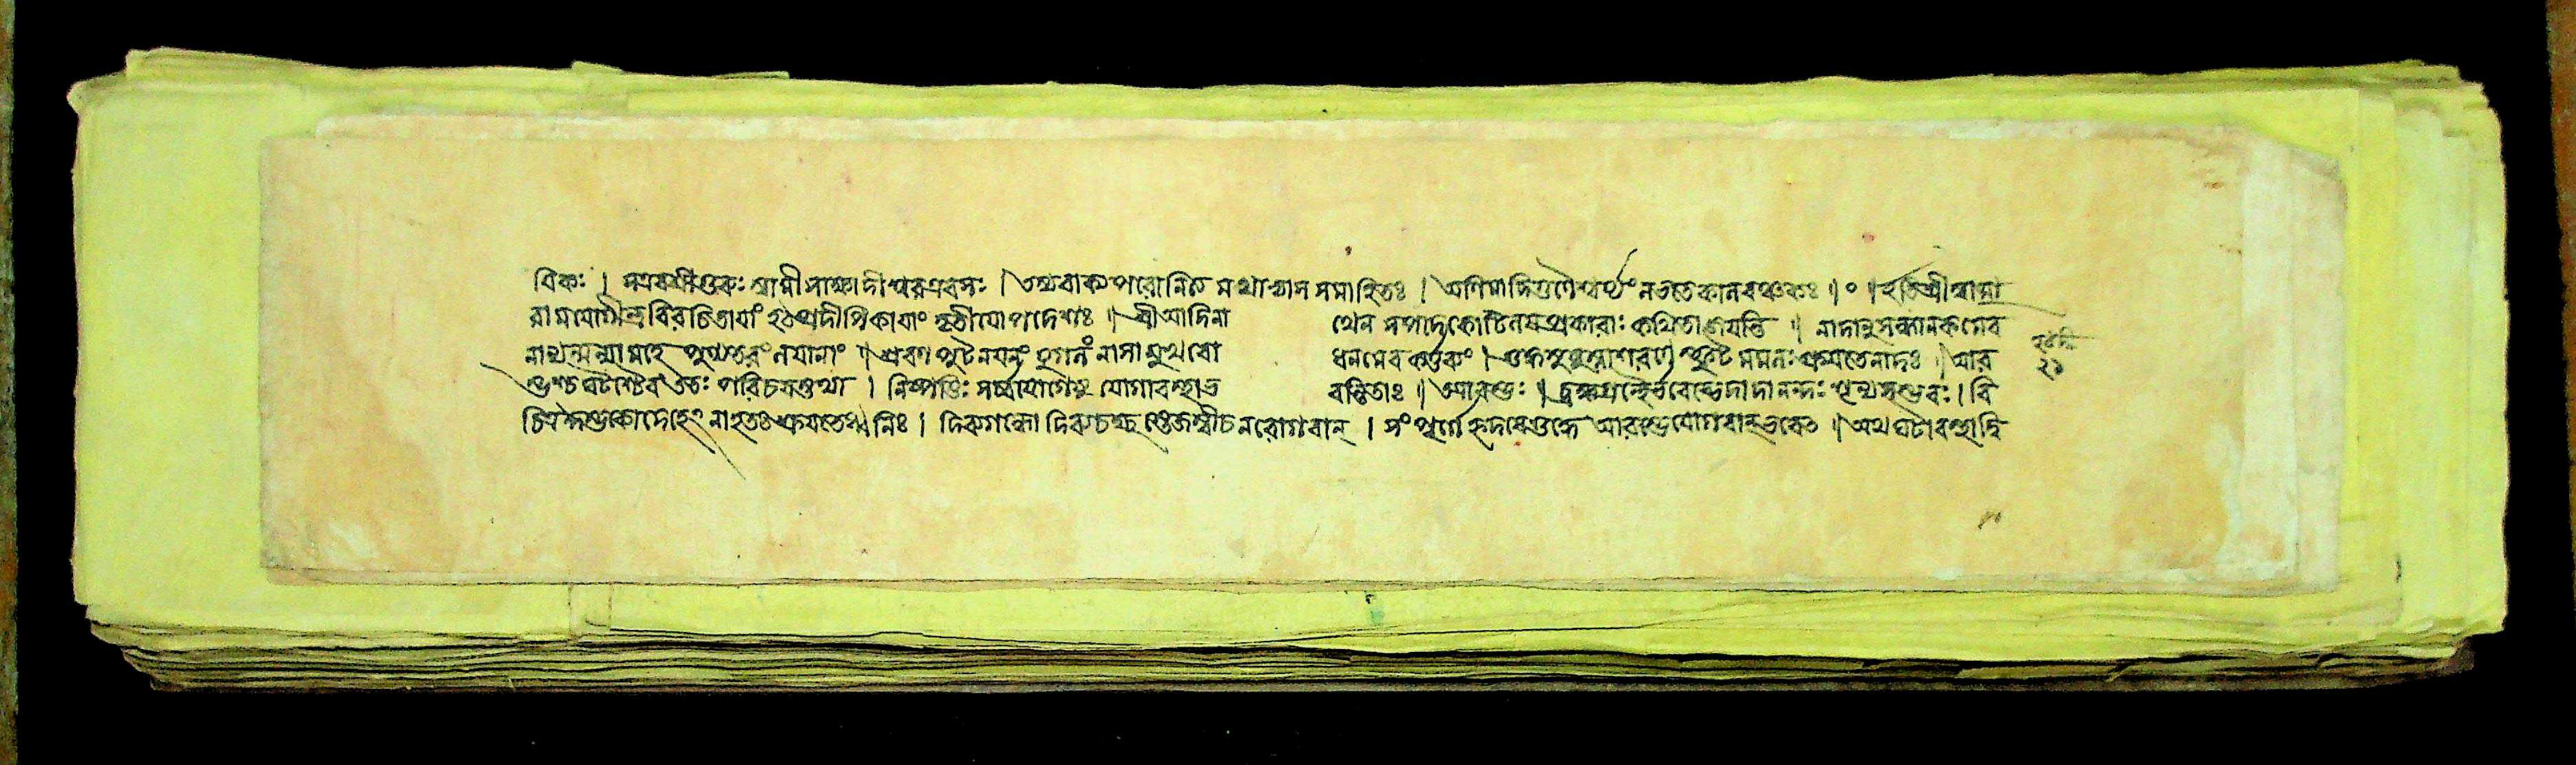 বিকঃ । স এব শ্রীগুরুঃ স্বামী সাক্ষাদীশ্বর এব সঃ । তস্য বাক্যপরো নিত্যমথাভ্যাসসমাহিতঃ । অণিমাদিগুণৈশ্বর্য্যং লভতে কালবঞ্চকঃ ॥ ০ ॥ ইতি শ্রীস্বাত্মা
রামযোগীন্দ্রবিরচিতায়াং হঠপ্রদীপিকায়াং তৃতীয়োপদেশঃ ॥ শ্রীআদিনা থেন সপাদকোটিলয়প্রকারাঃ কথিতা জয়ন্তি ॥ নাদানুসন্ধানকমেব
মান্যমন্যামহে মুখ্যতরং লয়ানাং ॥ শ্রবণপুটনয়নযুগলং নাসামুখরো ধনমেব কর্ত্তব্যং । শুদ্ধসুষুম্নাসরণৌ স্ফুটমমলঃ শ্রূয়তে নাদঃ ॥ আর
ম্ভশ্চ ঘটশ্চৈব ততঃ পরিচয়স্তথা । নিষ্পত্তিঃ সর্ব্বযোগেষু যোগাবস্থাচ বন্তিতাঃ ॥ আরম্ভঃ ॥ ব্রহ্মগ্রন্থের্ভবেদ্ভেদাদানন্দঃ শূন্যসম্ভবঃ । বি
চিত্রক্বণকো দেহেঽনাহতঃ শ্রূয়তে ধ্বনিঃ । দিব্যগন্ধো দিব্যচক্ষুস্তেজস্বী চ নরোগবান্ । সংপূর্ণে হৃদয়ে শূন্যে আরম্ভে যোগবান্ভবেৎ ॥ অথ ঘটাবস্থা দ্বি
২১